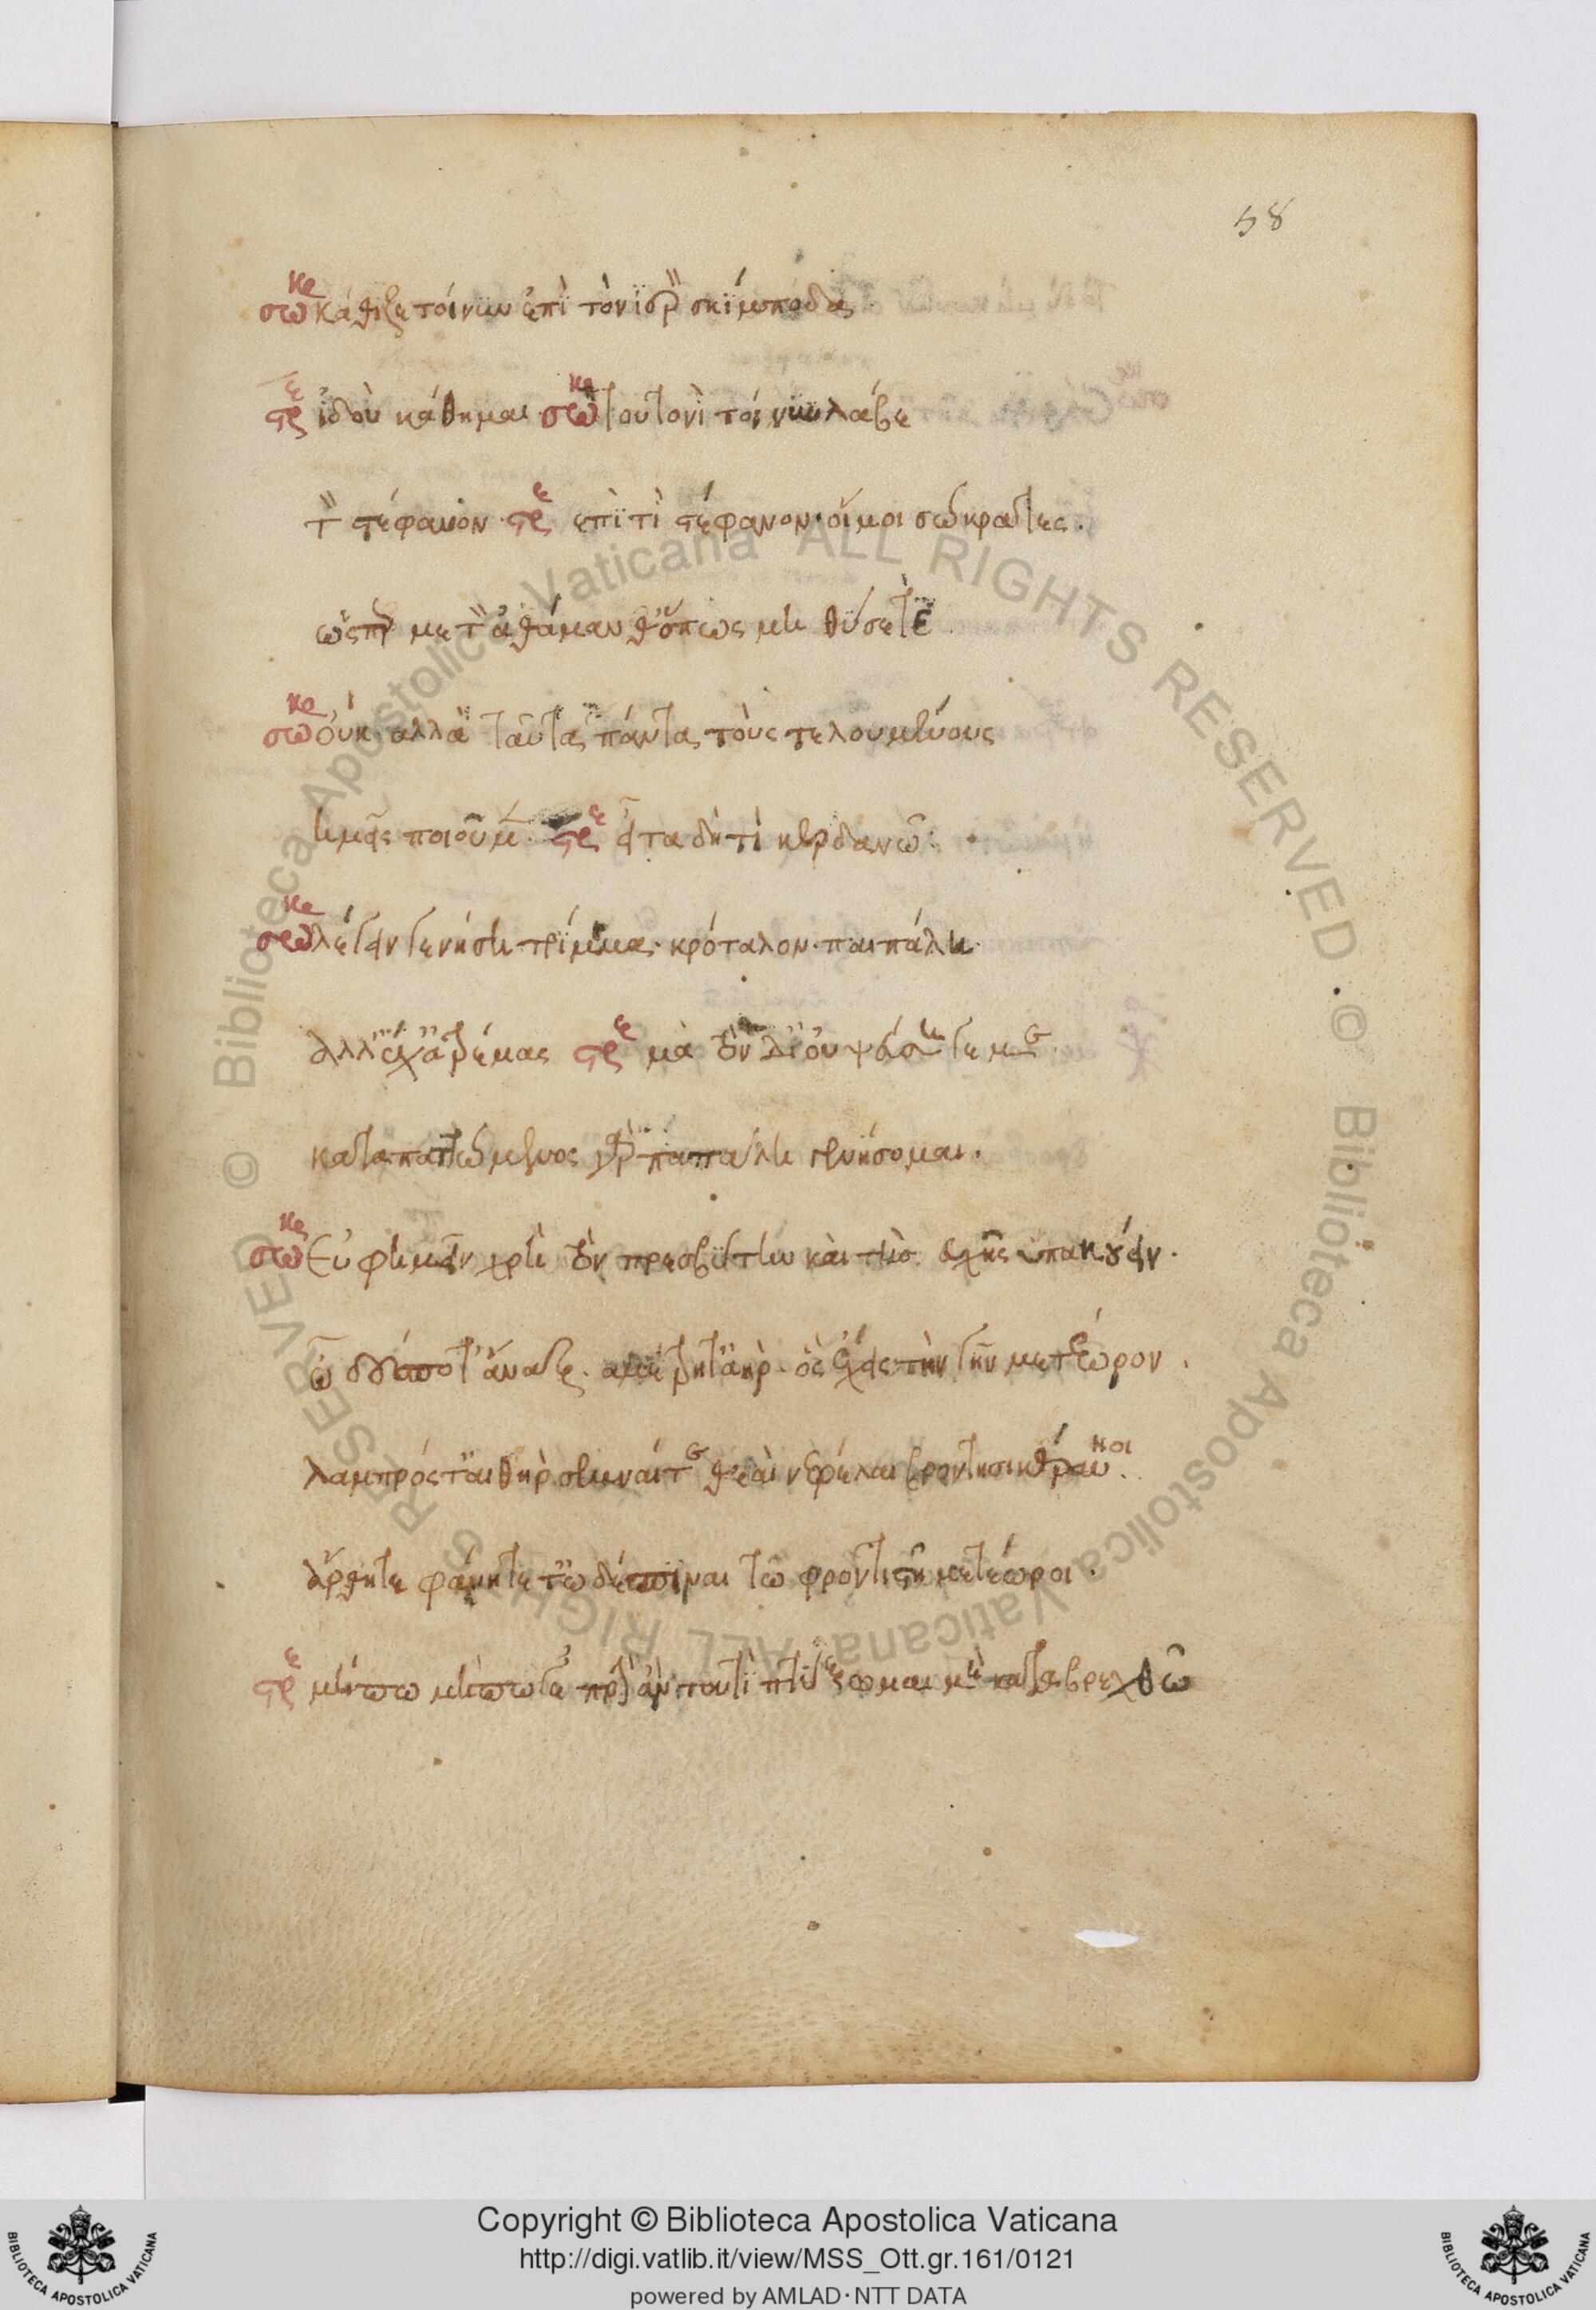 58
σωκρ κάθιζε τοίνυν ἐπὶ τὸν ἱερὸν σκίμποδα
στρε ἰδοὺ κάθημαι σωκρ τουτονὶ τοίνυν λάβε
τὸν στέφανον στρε ἐπὶ τὶ στέφανον· οἴμοι σώκρατες.
ὥσπερ με τὸν ἀθάμανθ' ὅπως μὴ θύσετε
σωκρ οὐκ αλλὰ ταῦτα πάντας τοὺς τελουμένους
ἡμεῖς ποιοῦμεν. στρε εἶτα δὴ τὶ κερδανῶ:
σωκρ λέγειν γενήσῃ τρίμμα· κρόταλον· παιπάλη.
ἀλλ' ἔχ' ἀτρέμας στρε μὰ τὸν δί' οὐ ψεύσῃ γε με.
καταπαττόμενος γὰρ παιπάλη γενήσομαι.
σωκρ Εὐφημεῖν χρὴ τὸν πρεσβύτην καὶ τῆς εὐχῆς ὑπακούειν.
ὦ δέσποτ' ἄναξ. αμέτρητ' ἀὴρ. ὃς ἔχεις τὴν γῆν μετέωρον.
λαμπρός τ' αἰθὴρ σεμναί τε θεαὶ νεφέλαι βροντησικέραυνοι.
ἄρθητε φάνητε τ' ὦ δέσποιναι τῶ φροντιστῆ μετέωροι.
στρε μήπω μήπω γε πρὶν ἂν τουτὶ πτύξωμαι μὴ καταβρεχθῶ
Copyright © Biblioteca Apostolica Vaticana
http://digi.vatlib.it/view/MSS_Ott.gr.161/0121
powered by AMLAD·NTT DATA
BIBLIOTECA APOSTOLICA VATICANA
BIBLIOTECA APOSTOLICA VATICANA
© Biblioteca Apostolica Vaticana ALL RIGHTS RESERVED
© Biblioteca Apostolica Vaticana ALL RIGHTS RESERVED